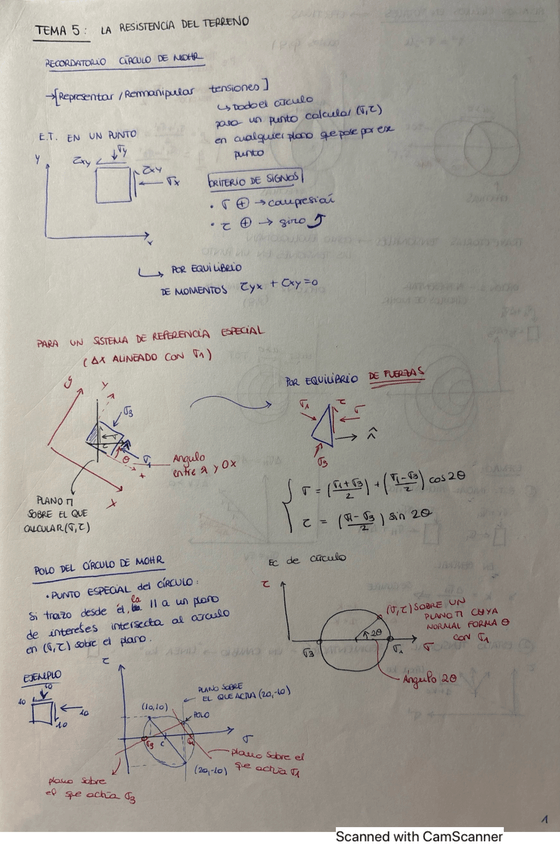 TEMA 5: LA RESISTENCIA DEL TERRENO
RECORDATORIO CÍRCULO DE MOHR
→[Representar / Remanipular tensiones]
↳ Todo el círculo
para un punto calcular (σ,τ)
en cualquier plano que pase por ese
punto
E.T. EN UN PUNTO
y
τxy
σy
τxy
σx
x
CRITERIO DE SIGNOS
• σ ⊕ → compresión
• τ ⊕ → giro
↳ POR EQUILIBRIO
DE MOMENTOS τyx + τxy = 0
PARA UN SISTEMA DE REFERENCIA ESPECIAL
(ΔX ALINEADO CON σ1)
y
σ3
σ1
θ
x
Angulo
entre n̂ y Ox
PLANO Π
SOBRE EL QUE
CALCULAR (σ,τ)
POR EQUILIBRIO DE FUERZAS
σ1
τ
σ
n̂
σ3
σ = (σ1+σ3/2) + (σ1-σ3/2) cos 2θ
τ = (σ1-σ3/2) sin 2θ
POLO DEL CÍRCULO DE MOHR
• PUNTO ESPECIAL del CÍRCULO:
Si trazo desde él, la // a un plano
de intereses intersecta al círculo
en (σ,τ) sobre el plano.
Ec de círculo
τ
(σ,τ) SOBRE UN
PLANO Π CUYA
NORMAL FORMA θ
CON σ1
2θ
σ3
σ1
σ
Angulo 2θ
EJEMPLO
10
20
10
τ
PLANO SOBRE
EL QUE ACTUA (20,-10)
(10,10)
POLO
σ3
C
σ
(20,-10)
plano sobre el
que actúa σ1
plano sobre
el que actúa σ3
1
Scanned with CamScanner